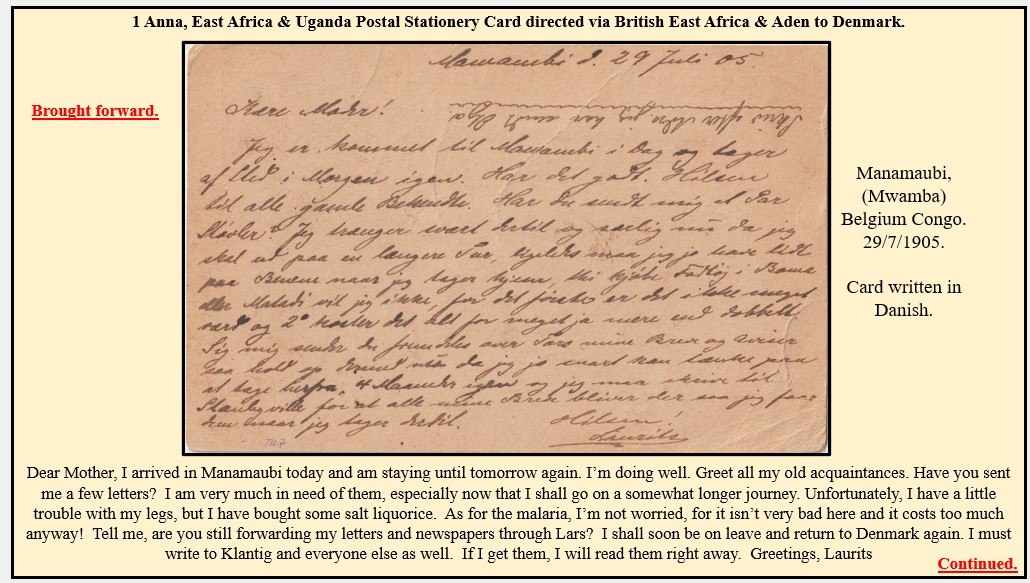 1 Anna, East Africa & Uganda Postal Stationery Card directed via British East Africa & Aden to Denmark.
Brought forward.
Mawambi d. 29 Juli 05.
Kære Moder!
Skriv efter Adr. jeg har sendt
Jeg er kommet til Mawambi i Dag og tager
af Sted i Morgen igen. Har det godt. Hilsen
til alle gamle Bekendte. Har du sendt mig et Par
Støvler? Jeg trænger svært dertil og særlig nu da jeg
skal ud paa en længere Tur, ligeledes maa jeg jo have lidt
paa Benene naar jeg tager hjem, thi kjøbe Fodtøj i Boma
eller Matadi vil jeg ikke, for det første er det ikke meget
værd og 2° koster det alt for meget ja mere end dobbelt.
Sig mig sender du fremdeles over Lars mine Breve og Aviser
saa hold op dermed nu da jeg jo snart kan tænke paa
at tage herfra, 4 Maaneder igen og jeg maa skrive til
Stanleyville for at alle mine Breve bliver der saa jeg faar
dem naar jeg tager dertil.
Hilsen!
Laurits
Manamaubi,
(Mwamba)
Belgium Congo.
29/7/1905.
Card written in
Danish.
Dear Mother, I arrived in Manamaubi today and am staying until tomorrow again. I’m doing well. Greet all my old acquaintances. Have you sent
me a few letters?  I am very much in need of them, especially now that I shall go on a somewhat longer journey. Unfortunately, I have a little
trouble with my legs, but I have bought some salt liquorice.  As for the malaria, I’m not worried, for it isn’t very bad here and it costs too much
anyway!  Tell me, are you still forwarding my letters and newspapers through Lars?  I shall soon be on leave and return to Denmark again. I must
write to Klantig and everyone else as well.  If I get them, I will read them right away.  Greetings, Laurits
Continued.